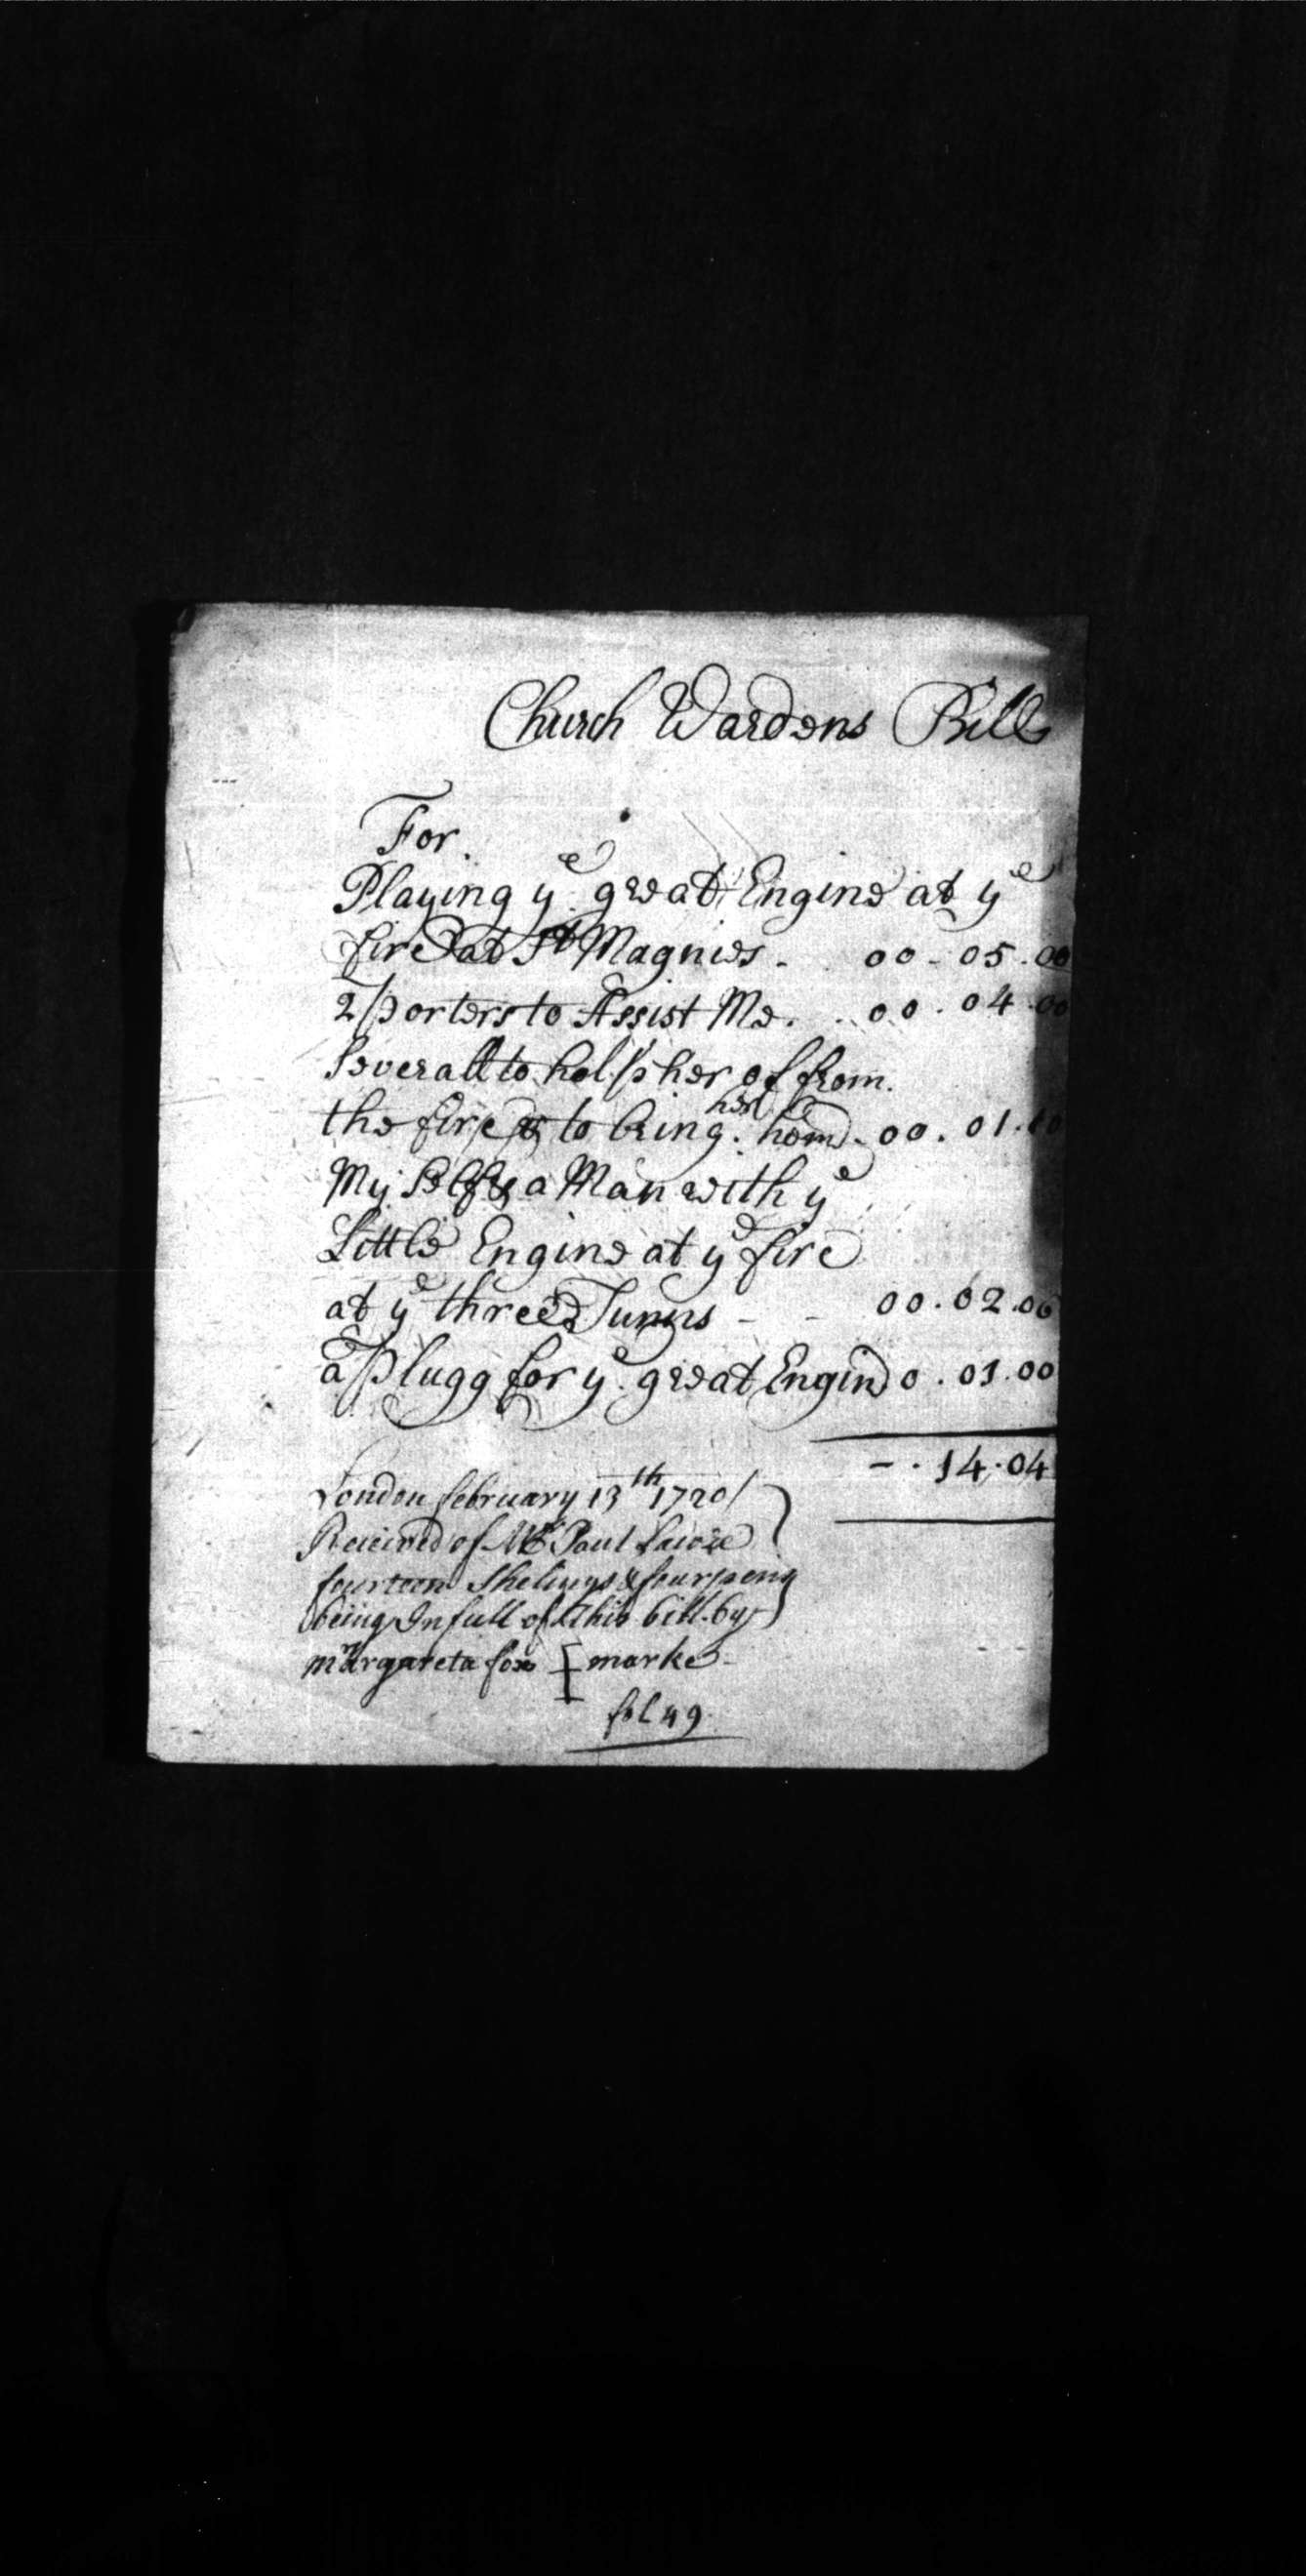 Church Wardens Bill
For
Playing ye great Engine at ye
fire at St Magnus - 00 - 05 . 00
2 porters to Assist Me . . 00 . 04 . 00
Severall to help her of from
the fire & to bring her home - 00 . 01 . 10
My Self & a Man with ye
Little Engine at ye fire
at ye three Tunns - - 00 . 02 . 06
a plugg for ye great Engin 0 . 01 . 00
- . 14 . 04
London february 13th 1720/
Received of Mr Paul
fourteen Shelings & four peny
being In full of this bill by
margareta fox [ marke
fol 49